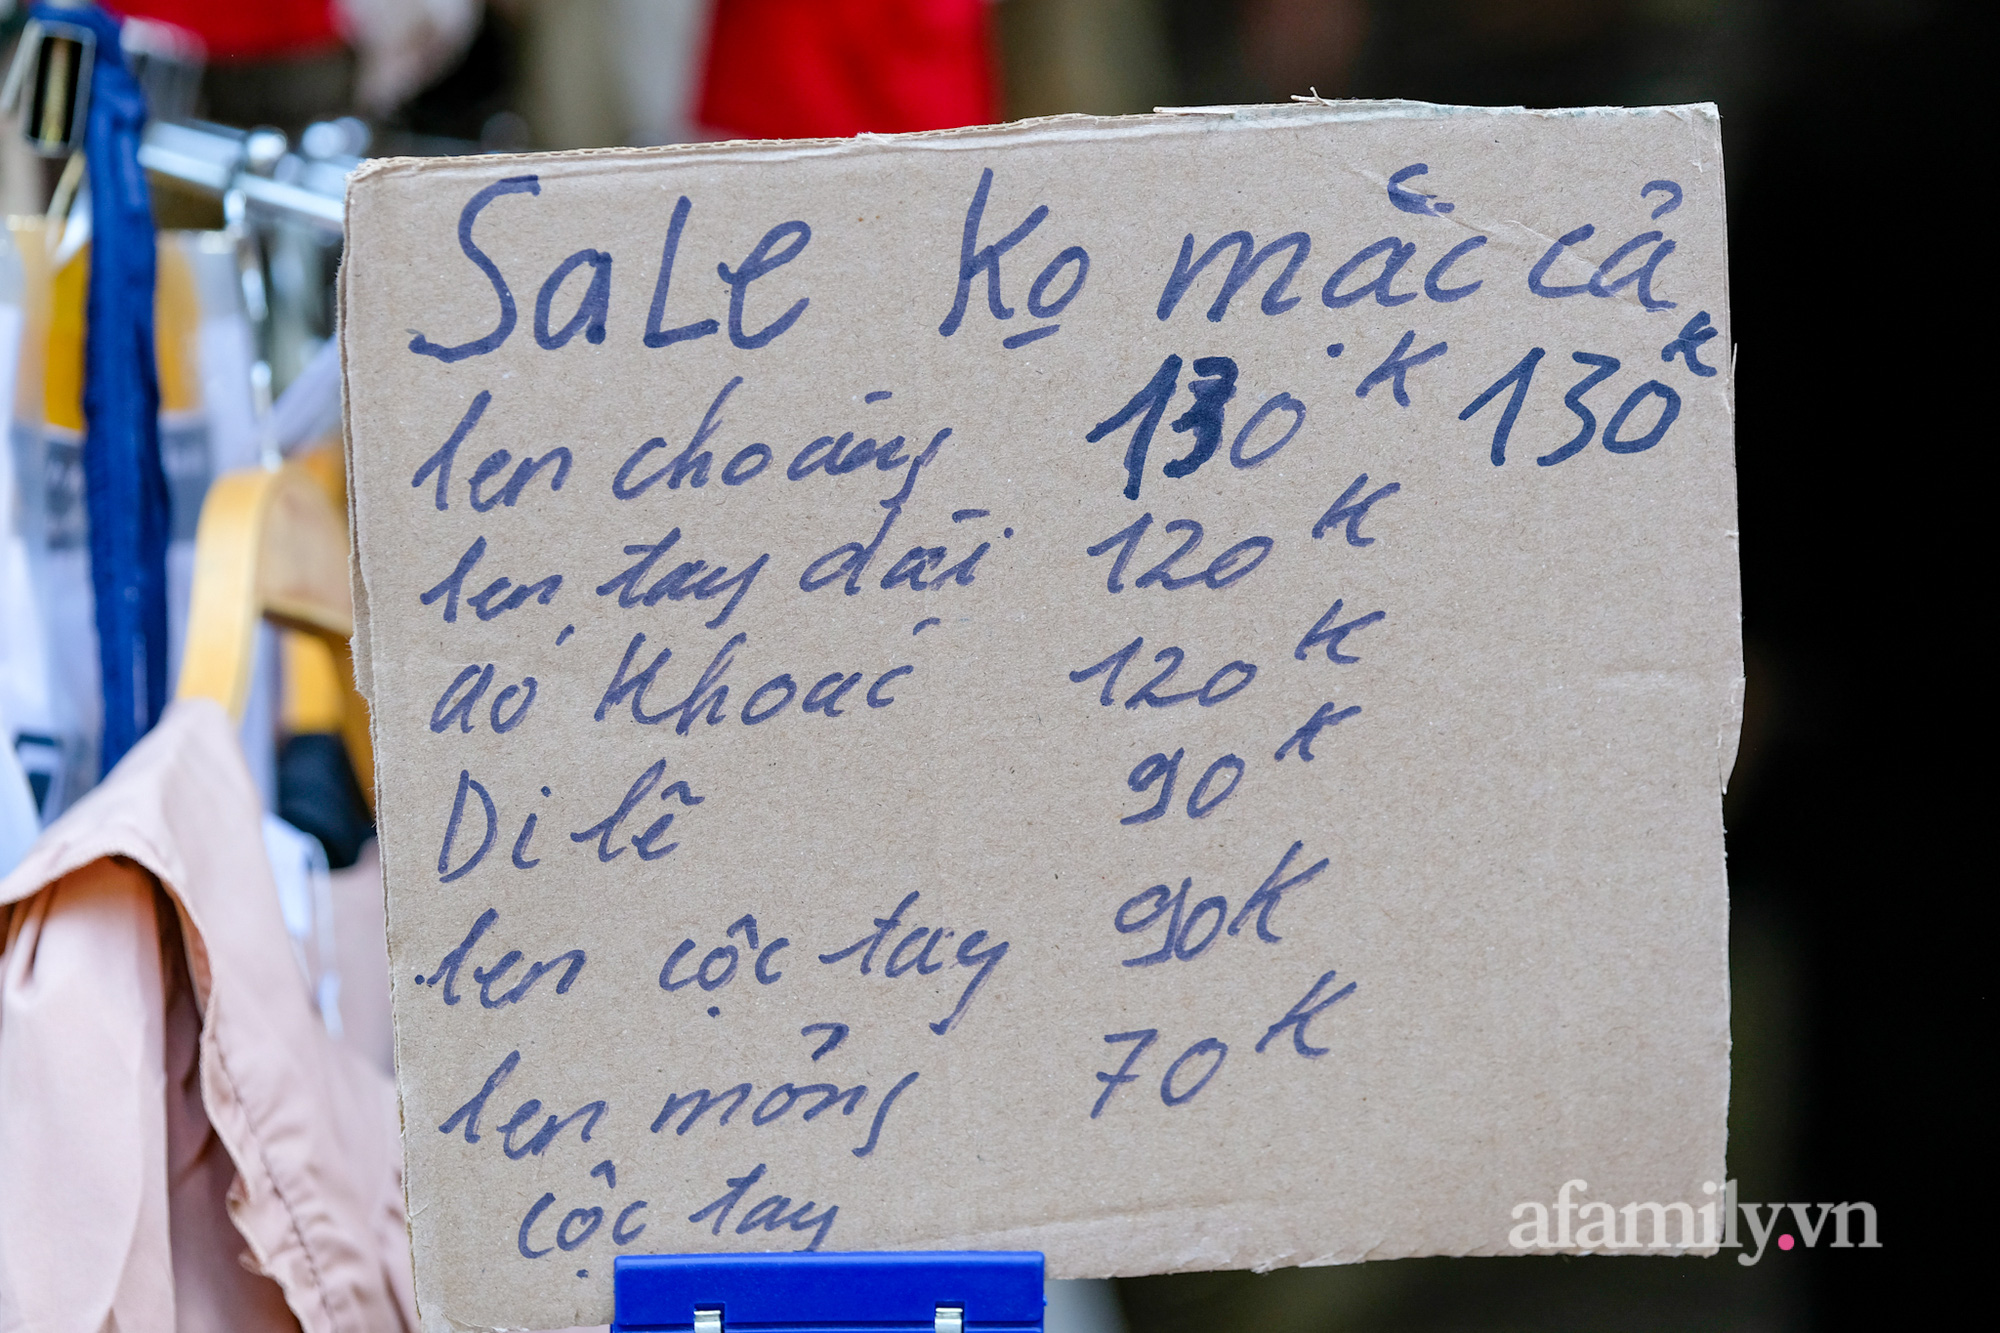 Sale Ko mặc cả
len choàng 130K 130K
len tay dài 120K
áo khoác 120K
Di lê 90K
len cộc tay 90K
len mỏng 70K
cộc tay
afamily.vn